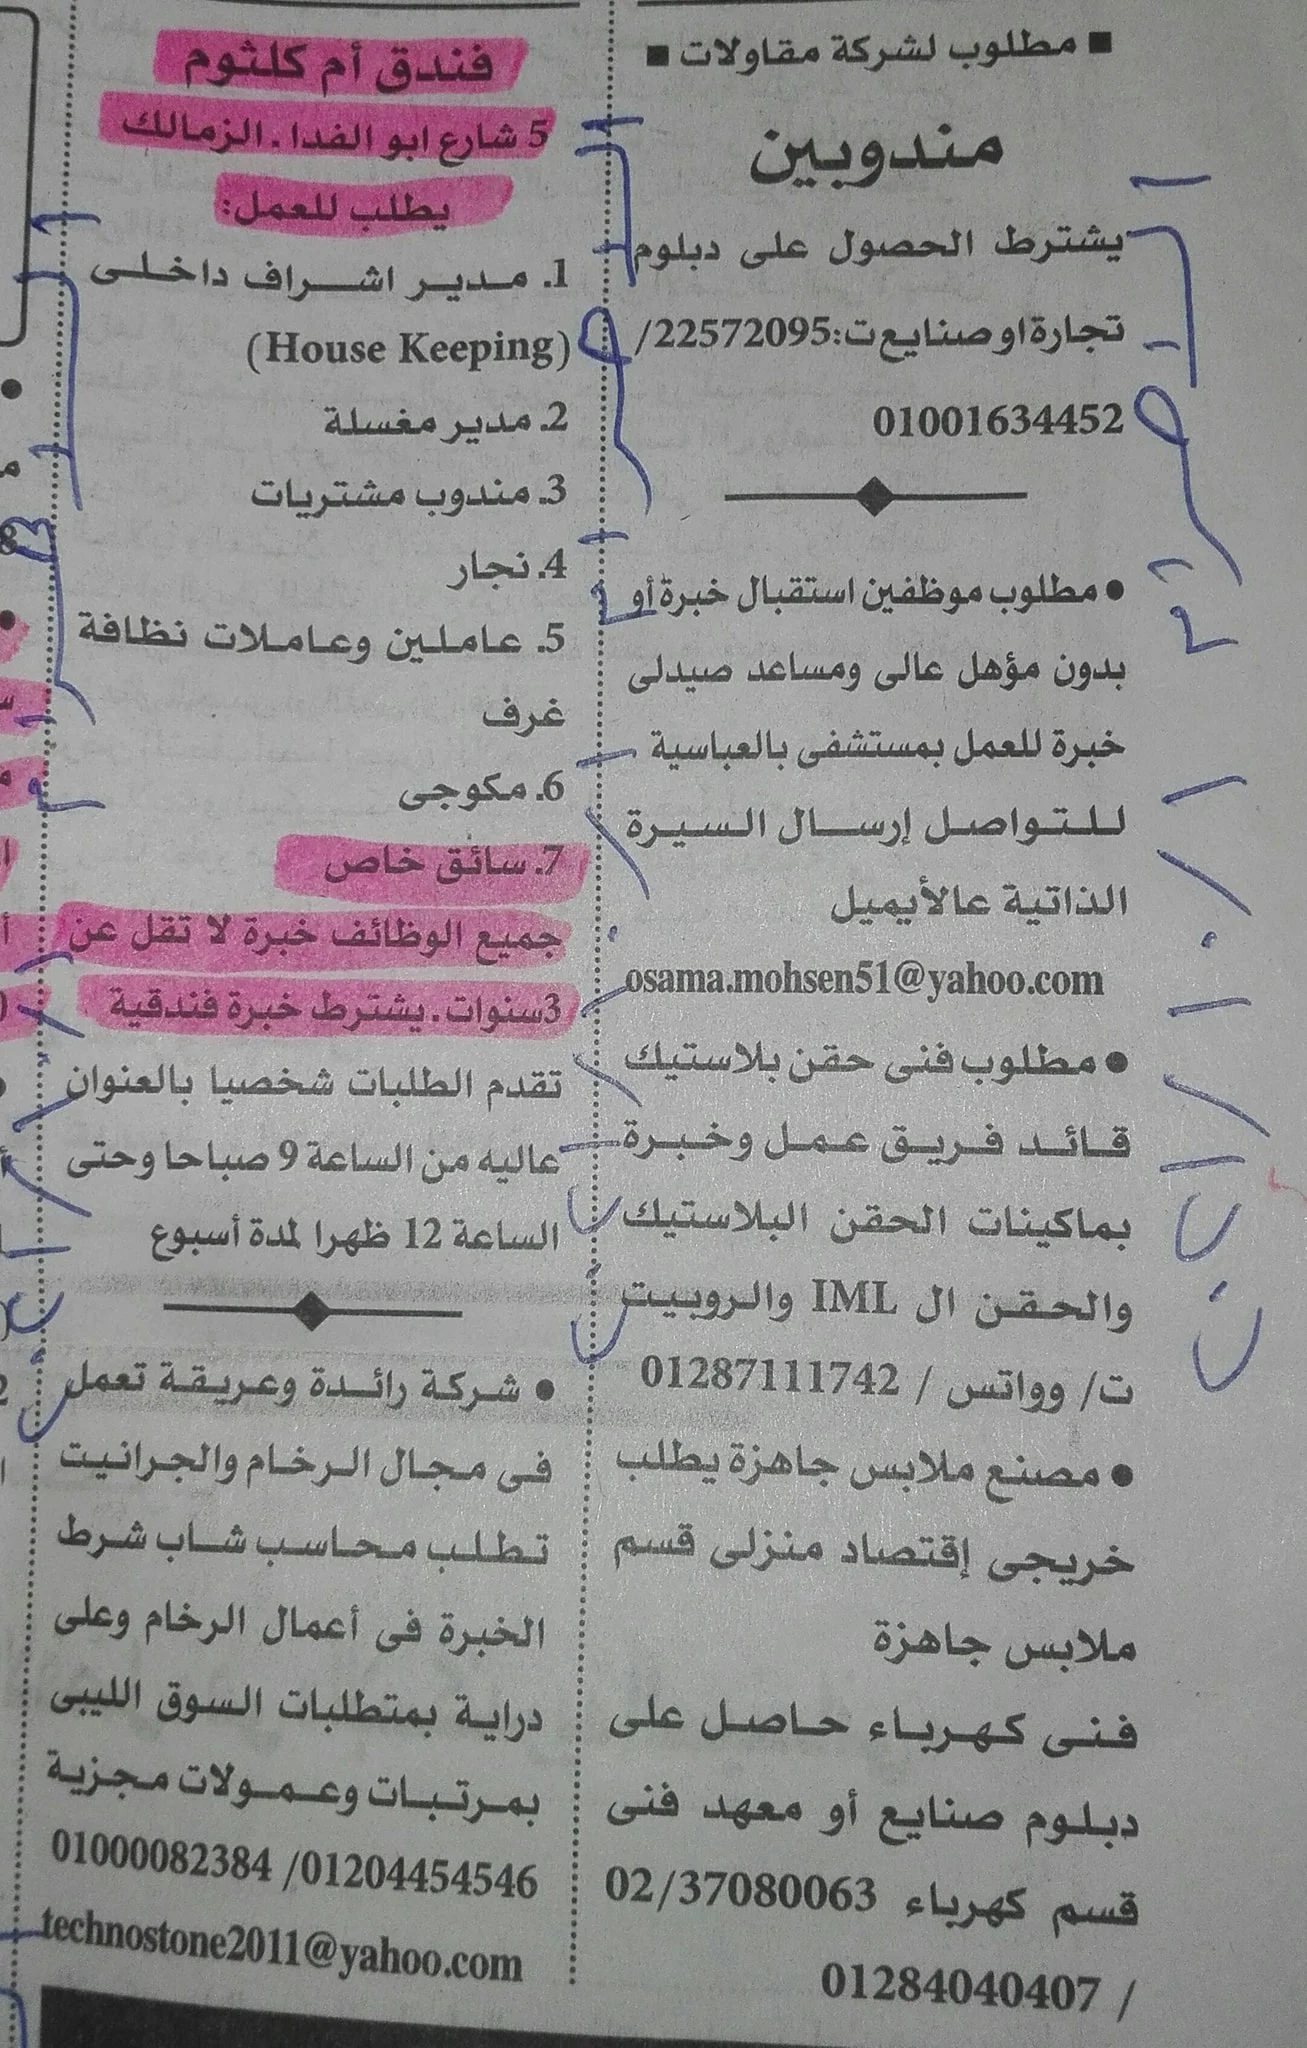 ■ مطلوب لشركة مقاولات ■
مندوبين
يشترط الحصول على دبلوم
تجارة او صنايع ت:22572095/
01001634452
● مطلوب موظفين استقبال خبرة أو
بدون مؤهل عالى ومساعد صيدلى
خبرة للعمل بمستشفى بالعباسية
للتواصل إرسال السيرة
الذاتية عالأيميل
osama.mohsen51@yahoo.com
● مطلوب فنى حقن بلاستيك
قائد فريق عمل وخبرة
بماكينات الحقن البلاستيك
والحقن ال IML والروبيت
ت/ وواتس / 01287111742
● مصنع ملابس جاهزة يطلب
خريجى إقتصاد منزلى قسم
ملابس جاهزة
فنى كهرباء حاصل على
دبلوم صنايع أو معهد فنى
قسم كهرباء 02/37080063
/ 01284040407
فندق أم كلثوم
5 شارع ابو الفدا . الزمالك
يطلب للعمل:
1. مدير اشراف داخلى
(House Keeping)
2. مدير مغسلة
3. مندوب مشتريات
4. نجار
5. عاملين وعاملات نظافة
غرف
6. مكوجى
7. سائق خاص
جميع الوظائف خبرة لا تقل عن
3سنوات . يشترط خبرة فندقية
تقدم الطلبات شخصيا بالعنوان
عاليه من الساعة 9 صباحا وحتى
الساعة 12 ظهرا لمدة أسبوع
● شركة رائدة وعريقة تعمل
فى مجال الرخام والجرانيت
تطلب محاسب شاب شرط
الخبرة فى أعمال الرخام وعلى
دراية بمتطلبات السوق الليبى
بمرتبات وعمولات مجزية
01000082384 /01204454546
technostone2011@yahoo.com